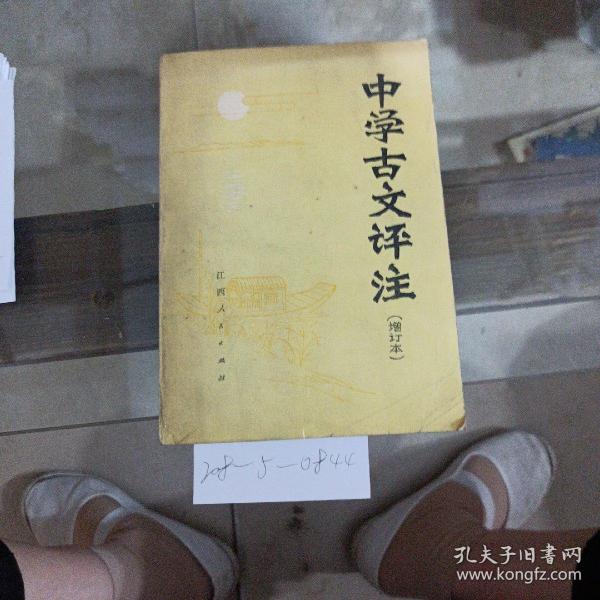 中学古文评注
(增订本)
江西人民出版社
208-5-0844
孔夫子旧书网
www.kongfz.com